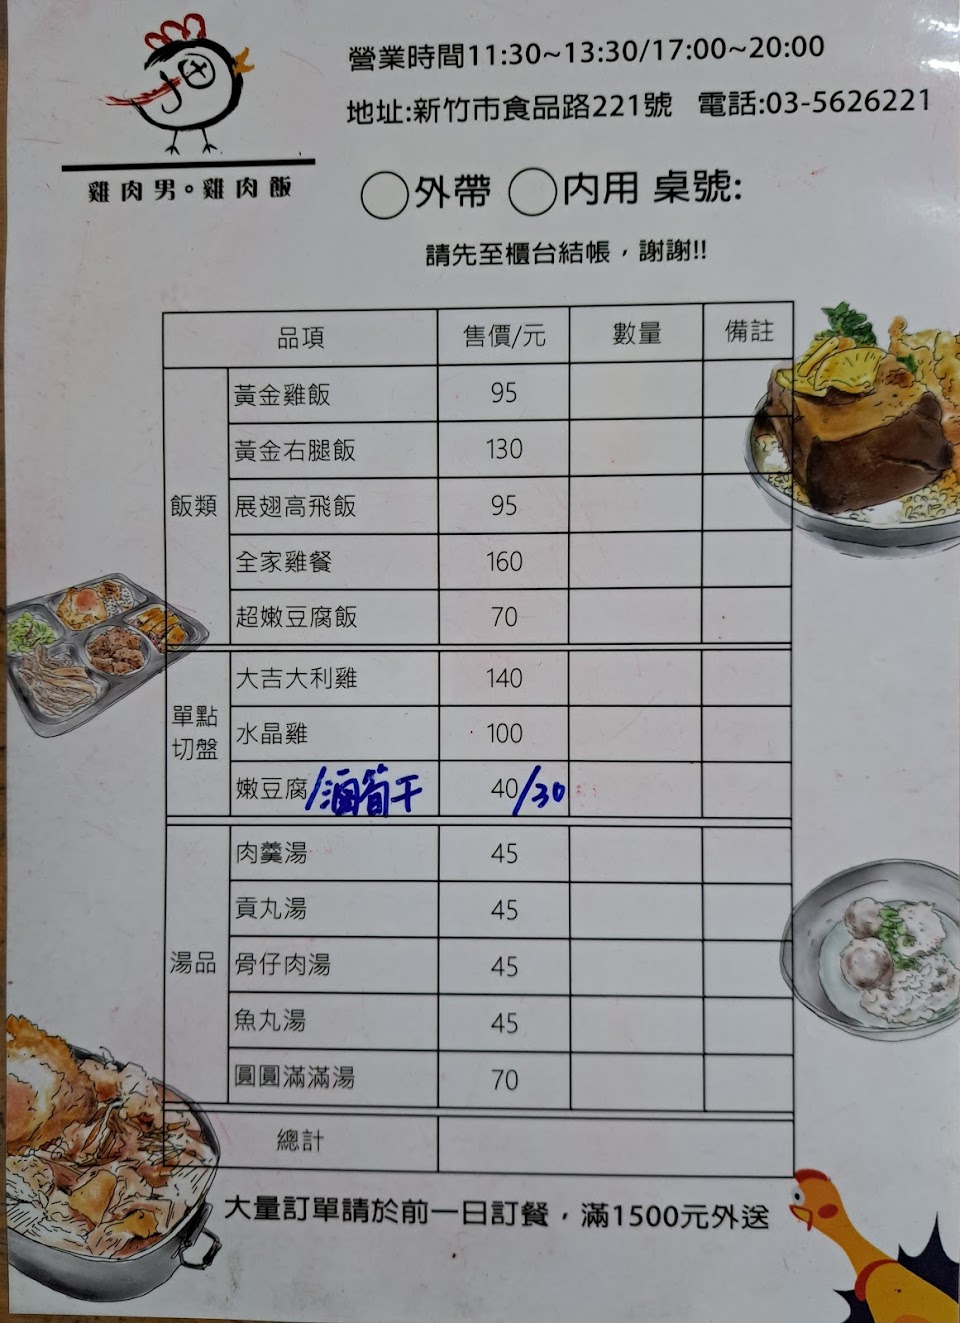 營業時間11:30~13:30/17:00~20:00
地址:新竹市食品路221號 電話:03-5626221
雞肉男。雞肉飯
外帶 內用 桌號:
請先至櫃台結帳,謝謝!!
品項 售價/元 數量 備註
飯類
黃金雞飯 95
黃金右腿飯 130
展翅高飛飯 95
全家雞餐 160
超嫩豆腐飯 70
單點
切盤
大吉大利雞 140
水晶雞 100
嫩豆腐/滷筍干 40/30
湯品
肉羹湯 45
貢丸湯 45
骨仔肉湯 45
魚丸湯 45
圓圓滿滿湯 70
總計
大量訂單請於前一日訂餐,滿1500元外送